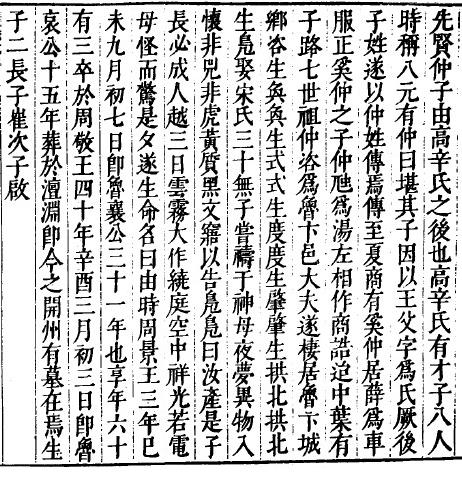 先賢仲子由高辛氏之後也高辛氏有才子八人
時稱八元有仲曰堪其子因以王父字為氏厥後
子姓遂以仲姓傳焉傳至夏商有奚仲居薛為車
服正奚仲之子仲虺為湯左相作商誥迨中葉有
子路七世祖仲咨為魯卞邑大夫遂棲居魯卞城
鄉咨生與與生式式生度度生肇肇生拱北拱北
生鳧娶宋氏三十無子嘗禱于神母夜夢異物入
懷非兕非虎黃質黑文寤以告鳧鳧曰汝產是子
長必成人越三日雲霧大作繞庭空中祥光若電
母怪而驚是夕遂生命名曰由時周景王三年巳
未九月初七日卽魯襄公三十一年也享年六十
有三卒於周敬王四十年辛酉三月初三日卽魯
哀公十五年葬於澶淵卽今之開州有墓在焉生
子二長子崔次子啟